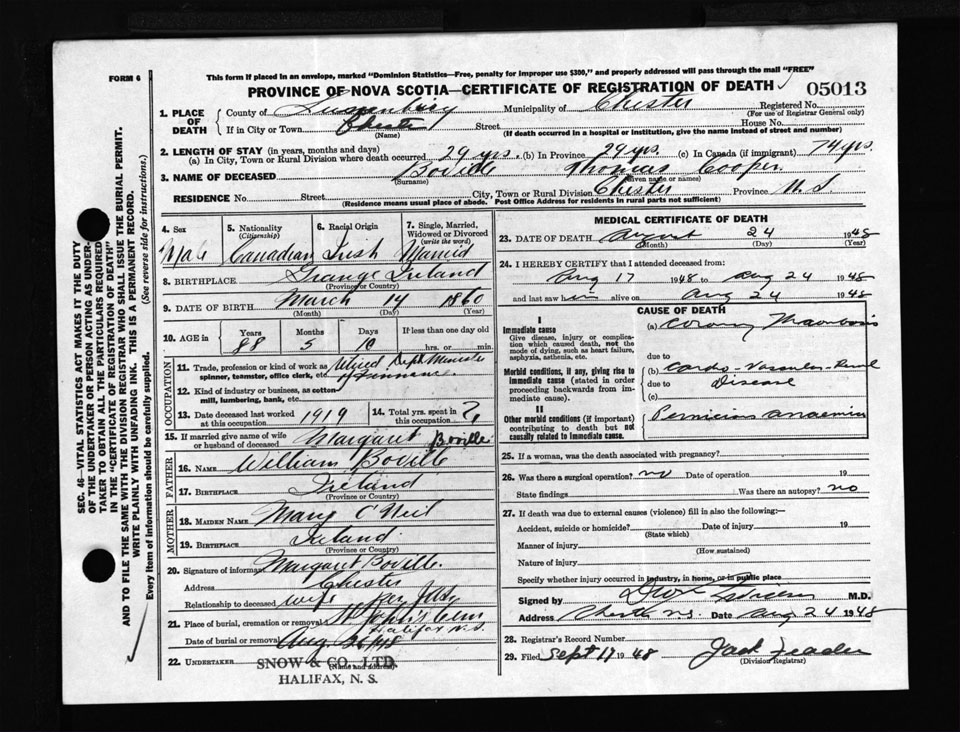 FORM 6
This form if placed in an envelope, marked "Dominion Statistics—Free, penalty for improper use $300," and properly addressed will pass through the mail "FREE"
PROVINCE OF NOVA SCOTIA—CERTIFICATE OF REGISTRATION OF DEATH 05013
1. PLACE OF DEATH
County of Lunenburg Municipality of Chester Registered No.
(For use of Registrar General only)
If in City or Town Chester Street House No.
(Name) (If death occurred in a hospital or institution, give the name instead of street and number)
2. LENGTH OF STAY (in years, months and days)
(a) In City, Town or Rural Division where death occurred 29 yrs. (b) In Province 29 yrs. (c) In Canada (if immigrant) 74 yrs.
3. NAME OF DECEASED Boville Thomas Cooper
(Surname) (Given name or names)
RESIDENCE No. Street City, Town or Rural Division Chester Province N.S.
(Residence means usual place of abode. Post Office Address for residents in rural parts not sufficient)
4. Sex
Male
5. Nationality
(Citizenship)
Canadian
6. Racial Origin
Irish
7. Single, Married, Widowed or Divorced
(write the word)
Married
8. BIRTHPLACE Grange Ireland
(Province or Country)
9. DATE OF BIRTH March 14 1860
(Month) (Day) (Year)
10. AGE in
Years Months Days If less than one day old
88 5 10 hrs. or min.
OCCUPATION
11. Trade, profession or kind of work as
spinner, teamster, office clerk, etc.
Dept. Minister
of Finance
12. Kind of industry or business, as cotton-
mill, lumbering, bank, etc.
13. Date deceased last worked
at this occupation 1919
14. Total yrs. spent in
this occupation
15. If married give name of wife
or husband of deceased Margaret Boville
FATHER
16. NAME William Boville
17. BIRTHPLACE Ireland
(Province or Country)
MOTHER
18. MAIDEN NAME Mary O'Neil
19. BIRTHPLACE Ireland
(Province or Country)
20. Signature of informant Margaret Boville.
Address Chester
Relationship to deceased wife
21. Place of burial, cremation or removal St. John's Cem
Halifax N.S.
Date of burial or removal Aug. 26/48
22. UNDERTAKER SNOW & CO. LTD.
(Name and address)
HALIFAX, N. S.
MEDICAL CERTIFICATE OF DEATH
23. DATE OF DEATH August 24 1948
(Month) (Day) (Year)
24. I HEREBY CERTIFY that I attended deceased from:
Aug 17 1948 to Aug 24 1948
and last saw him alive on Aug 24 1948
CAUSE OF DEATH
I
Immediate cause
Give disease, injury or complication which caused death, not the mode of dying, such as heart failure, asphyxia, asthenia, etc.
(a) Coronary Thrombosis
due to
Morbid conditions, if any, giving rise to immediate cause (stated in order proceeding backwards from immediate cause).
(b) Cardio-Vascular-Renal
due to Disease
(c)
II
Other morbid conditions (if important) contributing to death but not causally related to immediate cause.
Pernicious anaemia
25. If a woman, was the death associated with pregnancy?
26. Was there a surgical operation? no Date of operation 19
State findings Was there an autopsy? no
27. If death was due to external causes (violence) fill in also the following:—
Accident, suicide or homicide? Date of injury 19
(State which)
Manner of injury
(How sustained)
Nature of injury
Specify whether injury occurred in industry, in home, or in public place
Signed by M.D.
Address Chester N.S. Date Aug 24 1948
28. Registrar's Record Number
29. Filed Sept 17 1948 Jack
(Division Registrar)
SEC. 46—VITAL STATISTICS ACT MAKES IT THE DUTY
OF THE UNDERTAKER OR PERSON ACTING AS UNDER-
TAKER TO OBTAIN ALL THE PARTICULARS REQUIRED
IN THE "CERTIFICATE OF REGISTRATION OF DEATH"
AND TO FILE THE SAME WITH THE DIVISION REGISTRAR WHO SHALL ISSUE THE BURIAL PERMIT.
WRITE PLAINLY WITH UNFADING INK. THIS IS A PERMANENT RECORD.
Every item of information should be carefully supplied. (See reverse side for instructions.)